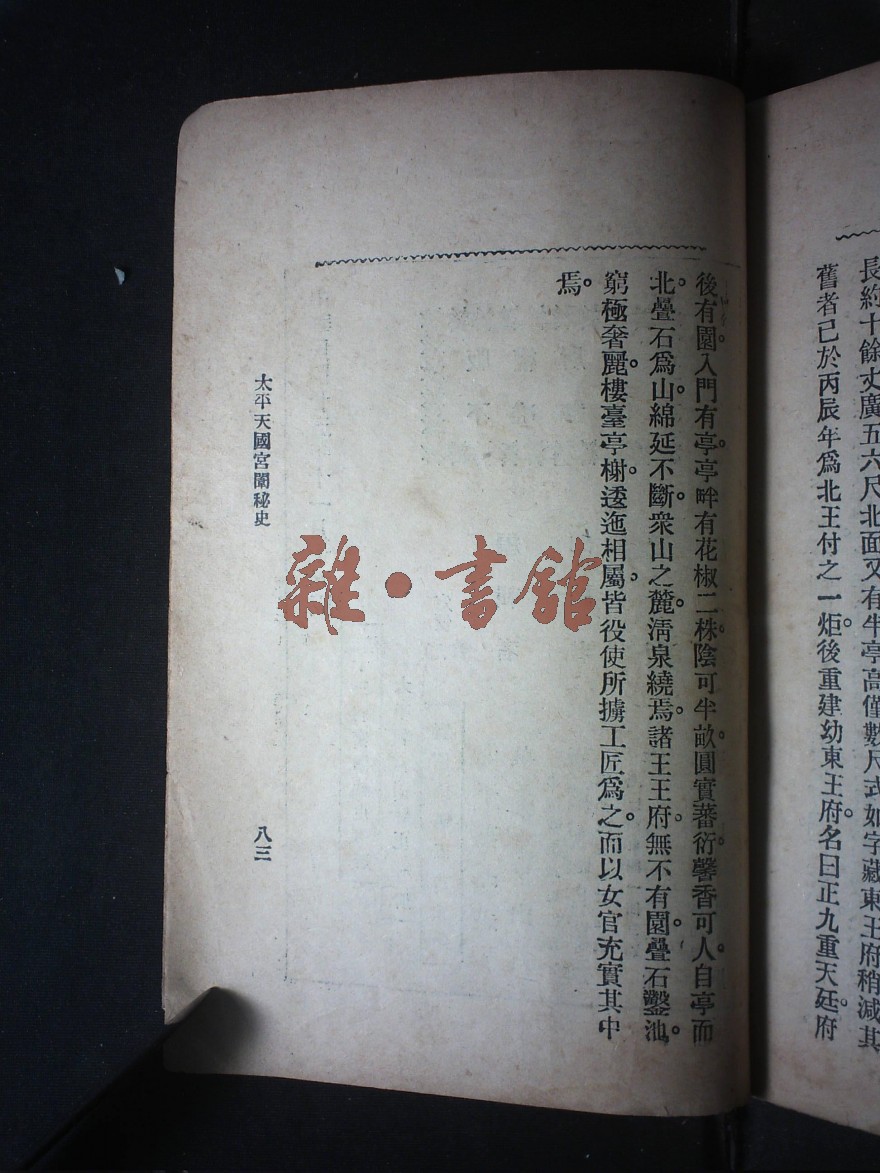 長約十餘丈廣五六尺北面又有牛亭高僅數尺式如字藏東王府稍減其
舊者已於丙辰年爲北王付之一炬。後重建幼東王府。名曰正九重天廷。府
後有園。入門有亭。亭畔有花椒二株。陰可半畝。圓實蕃衍。馨香可人。自亭而
北。疊石爲山。綿延不斷。衆山之麓。淸泉繞焉。諸王王府。無不有園。疊石鑿池。
窮極奢麗。樓臺亭榭。逶迤相屬。皆役使所擄工匠爲之。而以女官充實其中
焉。
太平天國宮闈秘史
八三
雜·書館